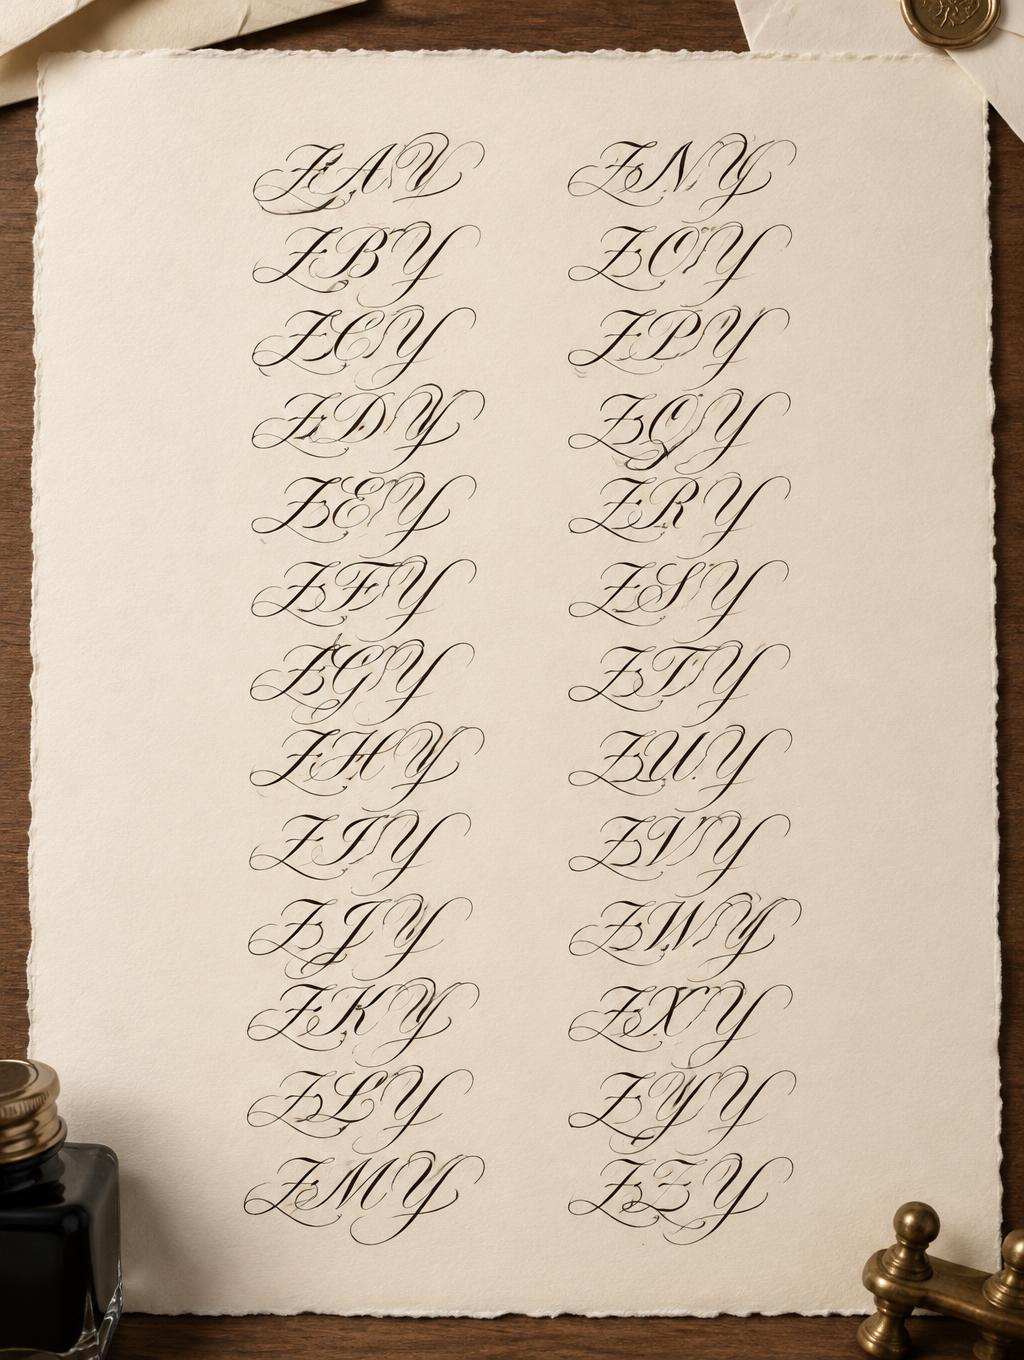 ZAY
ZBY
ZCY
ZDY
ZEY
ZFY
ZGY
ZHY
ZIY
ZJY
ZKY
ZLY
ZMY
ZNY
ZOY
ZPY
ZQY
ZRY
ZSY
ZTY
ZUY
ZVY
ZWY
ZXY
ZYY
ZZY